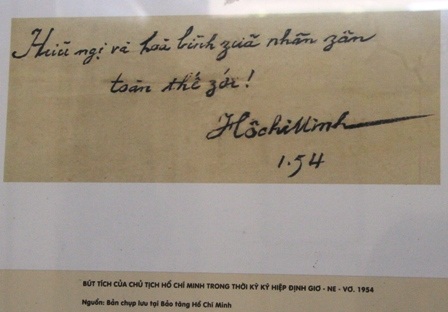 Hữu ngị và hoà bình zuữ nhân zân
toàn thế zới!
Hồ chí Minh
1.54
BÚT TÍCH CỦA CHỦ TỊCH HỒ CHÍ MINH TRONG THỜI KỲ KÝ HIỆP ĐỊNH GIƠ - NE - VƠ. 1954
Nguồn: Bản chụp lưu tại Bảo tàng Hồ Chí Minh